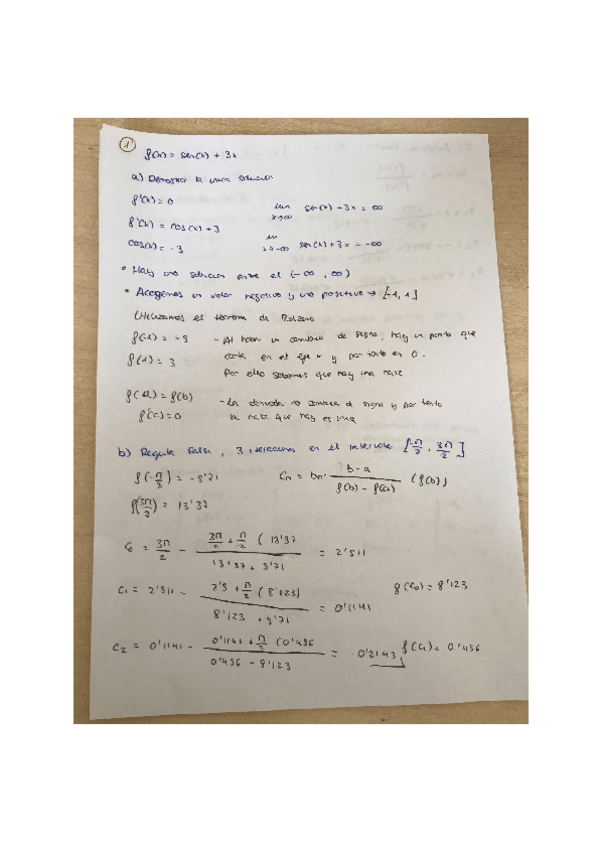 1
f(x) = sen(x) + 3x
a) Demostrar la única solución
f'(x) = 0
lim x→∞ sen(x) + 3x = ∞
f'(x) = cos(x) + 3
cos(x) = -3
lim x→-∞ sen(x) + 3x = -∞
• Hay una solución entre el (-∞, ∞)
• Acogemos un valor negativo y uno positivo → [-1, 1]
Utilizamos el teorema de
f(-1) = -3
- Al haber un cambio de signo, hay un punto que
f(1) = 3
corta en el eje x y por tanto es 0.
Por ello sabemos que hay una raíz
f(a) = f(b)
- La derivada no cambia de signo y por tanto
f'(c) = 0
la raíz que hay es única
b) Regula Falsi, 3 iteraciones en el intervalo [-π/2, 3π/2]
f(-π/2) = -5'71
Cn = bn - (b-a)/(f(b) - f(a)) (f(b))
f(3π/2) = 13'37
c0 = 3π/2 - (3π/2 + π/2 (13'37)/(13'37 + 5'71) = 2'511
c1 = 2'511 - (2'5 + π/2 (8'123)/(8'123 + 5'71) = 0'1141
f(c0) = 8'123
c2 = 0'1141 - (0'1141 + π/2 (0'456)/(0'456 - 8'123) = -0'2143
f(c1) = 0'456